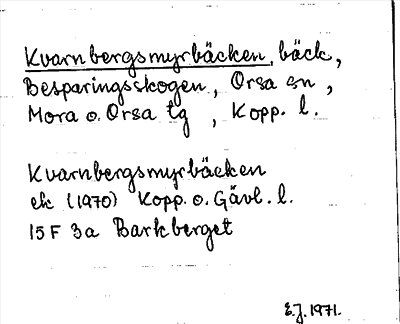 Kvarnbergsmyrbäcken, bäck,
Besparingsskogen, Orsa sn,
Mora o. Orsa tg, Kopp. l.
Kvarnbergsmyrbäcken
ek (1970) Kopp. o. Gävl. l.
15 F 3a Barkberget
E.J. 1971.